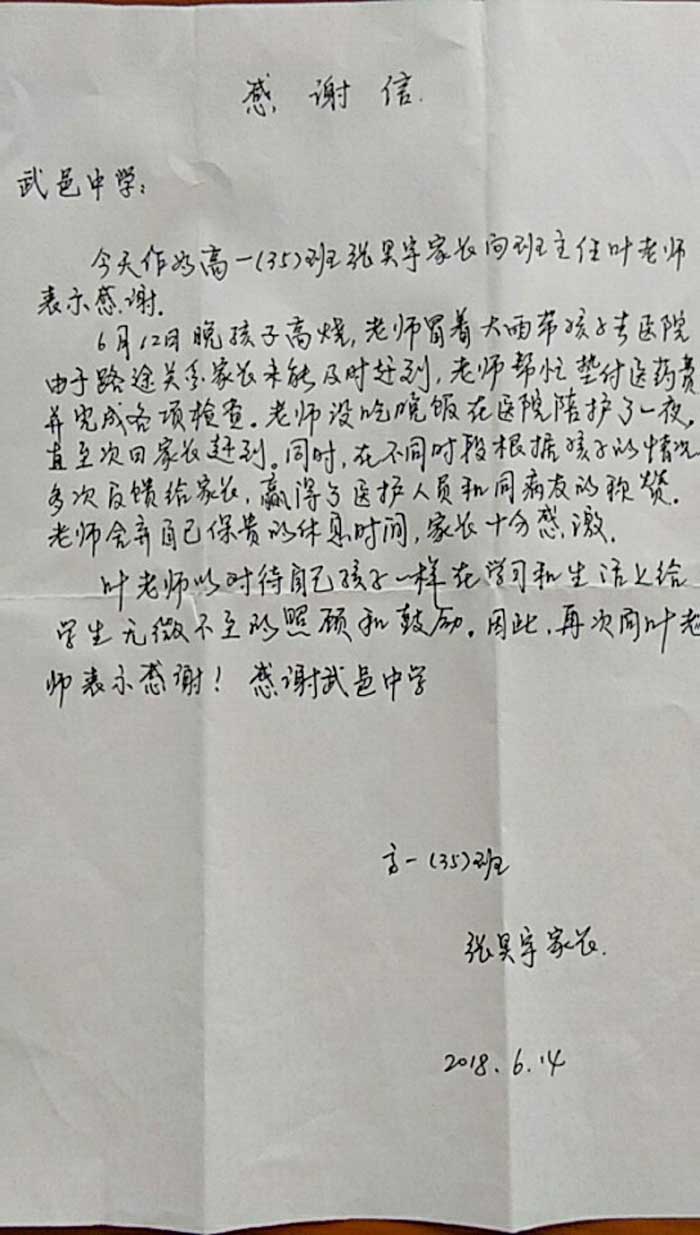 感谢信.
武邑中学:
今天作为高一(35)班张昊宇家长向班主任叶老师
表示感谢.
6月12日晚孩子高烧,老师冒着大雨带孩子去医院
由于路途关系家长未能及时赶到,老师帮忙垫付医药费
并完成各项检查。老师没吃晚饭在医院陪护了一夜。
直至次日家长赶到。同时,在不同时段根据孩子的情况
多次反馈给家长,赢得了医护人员和同病友的称赞。
老师舍弃自己保贵的休息时间,家长十分感激.
叶老师以对待自己孩子一样在学习和生活上给
学生无微不至的照顾和鼓励。因此,再次向叶老
师表示感谢!感谢武邑中学
高一(35)班
张昊宇家长.
2018.6.14